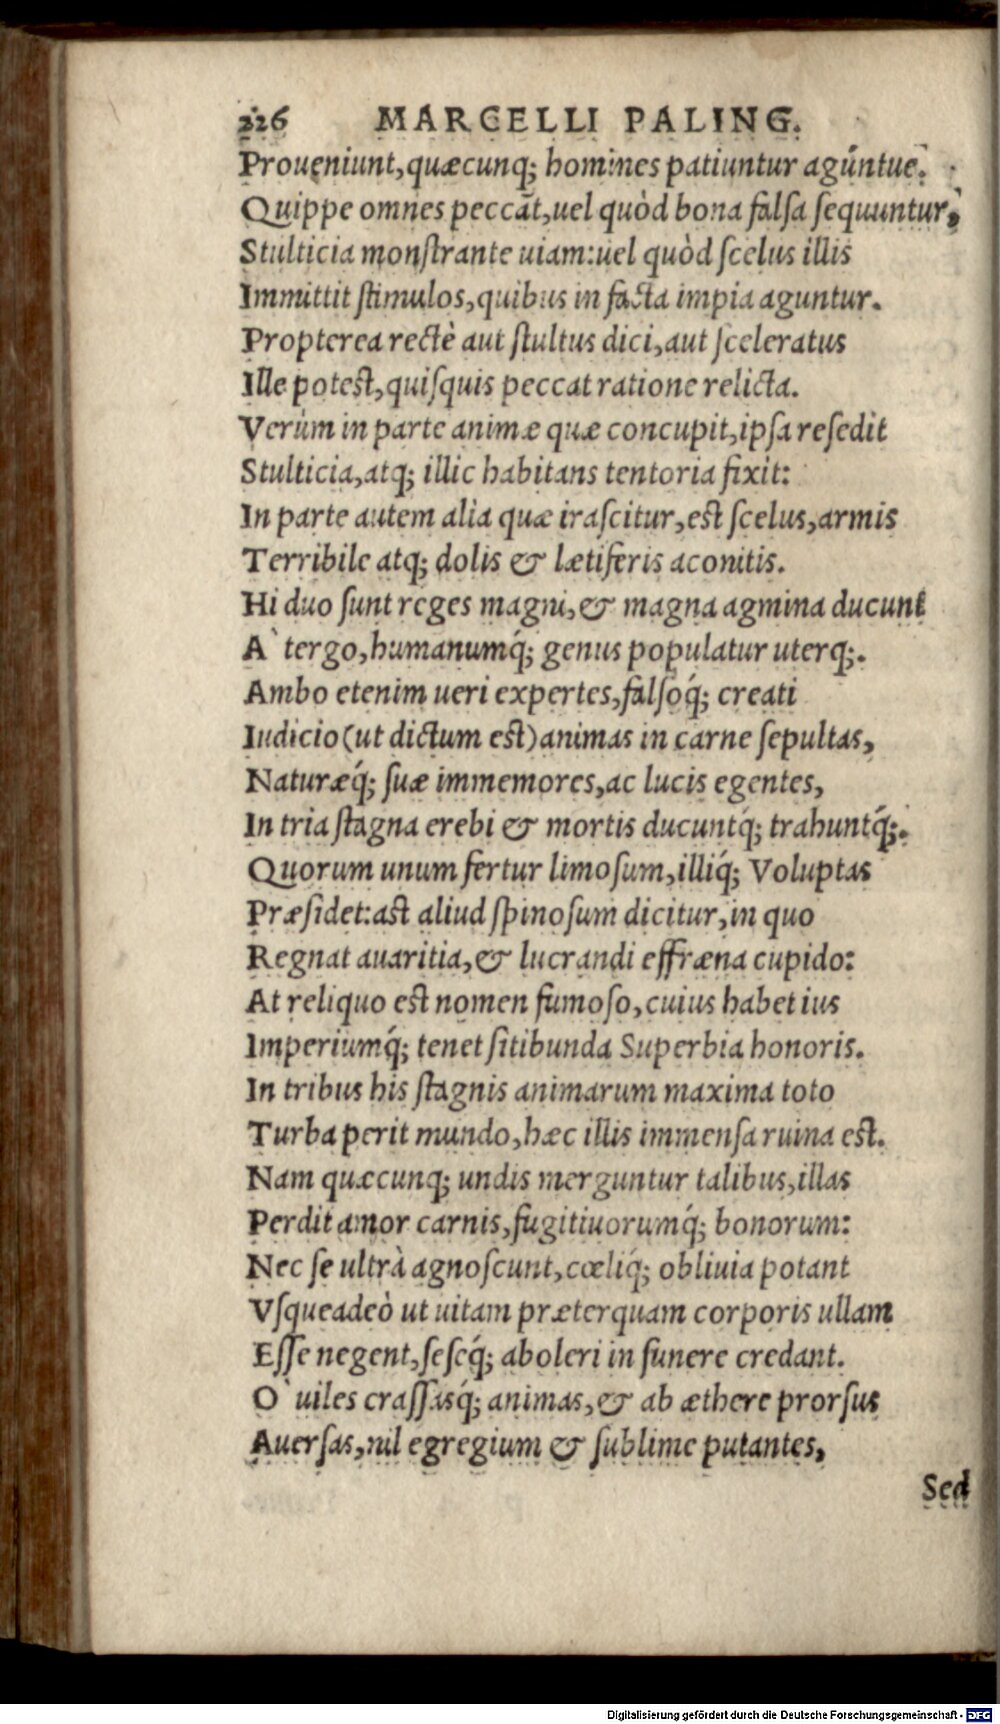 226 MARCELLI PALING.
Proueniunt, quæcunq; homines patiuntur agũntue.
Quippe omnes peccãt, uel quòd bona falsa sequuntur,
Stulticia monstrante uiam: uel quòd scelus illis
Immittit stimulos, quibus in facta impia aguntur.
Propterea rectè aut stultus dici, aut sceleratus
Ille potest, quisquis peccat ratione relicta.
Verùm in parte animæ quæ concupit, ipsa resedit
Stulticia, atq; illic habitans tentoria fixit:
In parte autem alia quæ irascitur, est scelus, armis
Terribile atq; dolis & lætiferis aconitis.
Hi duo sunt reges magni, & magna agmina ducunt
A` tergo, humanumq́; genus populatur uterq;.
Ambo etenim ueri expertes, falsoq́; creati
Iudicio (ut dictum est) animas in carne sepultas,
Naturæq́; suæ immemores, ac lucis egentes,
In tria stagna erebi & mortis ducuntq́; trahuntq́;.
Quorum unum fertur limosum, illiq́; Voluptas
Præsidet: ast aliud spinosum dicitur, in quo
Regnat auaritia, & lucrandi effræna cupido:
At reliquo est nomen fumoso, cuius habet ius
Imperiumq́; tenet sitibunda Superbia honoris.
In tribus his stagnis animarum maxima toto
Turba perit mundo, hæc illis immensa ruina est.
Nam quæcunq; undis merguntur talibus, illas
Perdit amor carnis, fugitiuorumq́; bonorum:
Nec se ultrà agnoscunt, cœliq́; obliuia potant
Vsqueadeò ut uitam præterquam corporis ullam
Esse negent, seseq́; aboleri in funere credant.
O` uiles crassasq́; animas, & ab æthere prorsus
Auersas, nil egregium & sublime putantes,
Sed
Digitalisierung gefördert durch die Deutsche Forschungsgemeinschaft - DFG